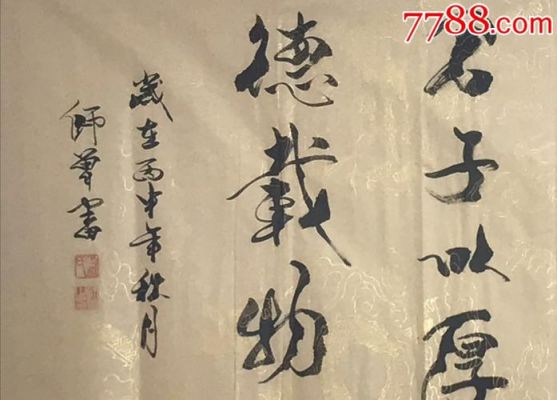 7788.com
君子以厚
德載物
歲在丙申年秋月
師尊書